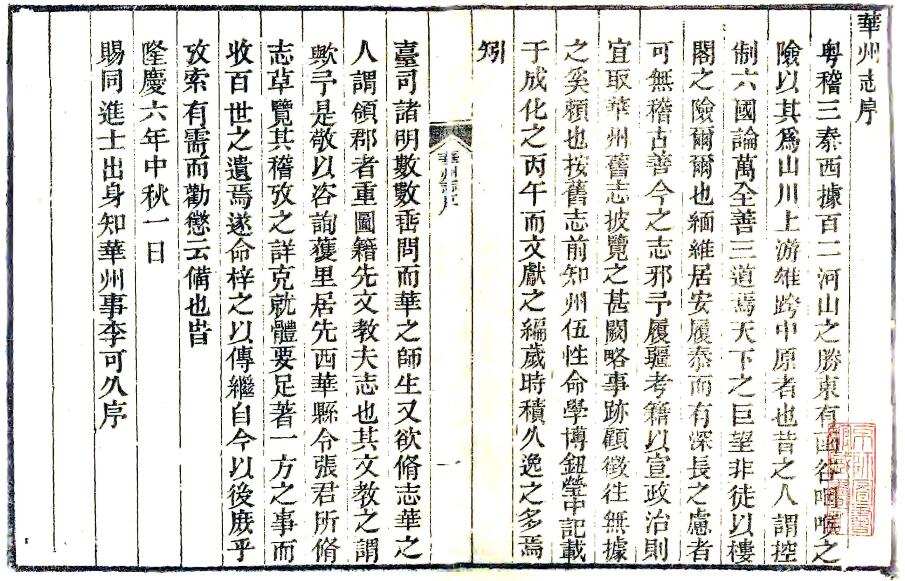 華州志序
粤稽三秦西據百二河山之勝東有函谷咽喉之
險以其爲山川上游雄跨中原者也昔之人謂控
制六國論萬全善三道焉天下之巨望非徒以樓
閣之險爾爾也緬維居安履泰而有深長之慮者
可無稽古善今之志邪予履疆考籍以宣政治則
宜取華州舊志披覽之甚闕略事跡顧徵往無據
之奚賴也按舊志前知州伍性命學博鈕瑩中記載
于成化之丙午而文獻之編歲時積久逸之多焉
矧
華州志序
一
臺司諸明數數垂問而華之師生又欲脩志華之
人謂領郡者重圖籍先文教夫志也其文教之謂
歟予是敬以咨詢獲里居先西華縣令張君所脩
志草覽其稽攷之詳克就體要足著一方之事而
收百世之遺焉遂命梓之以傳繼自今以後庶乎
攷索有需而勸懲云備也旹
隆慶六年中秋一日
賜同進士出身知華州事李可久序
京師圖書